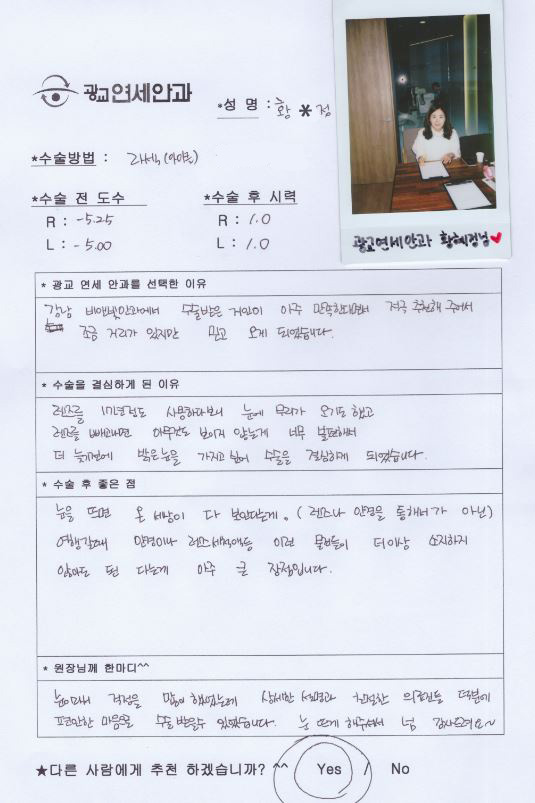 광교연세안과
*성 명 : 황 * 정
광교연세안과 황혜정님♥
*수술방법 : 라섹 (아이폰)
*수술 전 도수
*수술 후 시력
R : -5.25
R : 1.0
L : -5.00
L : 1.0
* 광교 연세 안과를 선택한 이유
강남 안과에서 수술받은 지인이 아주 만족한다면서 적극 추천해 주어서
조금 거리가 있지만 믿고 오게 되었습니다.
* 수술을 결심하게 된 이유
렌즈를 17년정도 사용하다보니 눈에 무리가 오기도 했고
렌즈를 빼고나면 아무것도 보이지 않는게 너무 불편해서
더 늦기전에 밝은눈을 가지고 싶어 수술을 결심하게 되었습니다.
* 수술 후 좋은 점
눈을 뜨면 온 세상이 다 보인다는게. (렌즈나 안경을 통해서가 아닌)
여행갈때 안경이나 렌즈세척액등 이런 물건들이 더이상 소지하지
않아도 된 다는게 아주 큰 장점입니다.
* 원장님께 한마디^^
눈이라서 걱정을 많이 했었는데 상세한 설명과 친절한 의료진들 덕분에
편안한 마음으로 수술 받을수 있었습니다. 눈 뜨게 해주셔서 넘 감사드려요~
★다른 사람에게 추천 하겠습니까? ^^ Yes / No